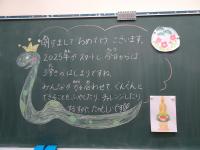 明けましておめでとうございます。
2025年がスタートし、今日からは
3学きのはじまりですね。
みんなで力を合わせて ぐんぐんと
できることをふやしたり、チャレンジしたり